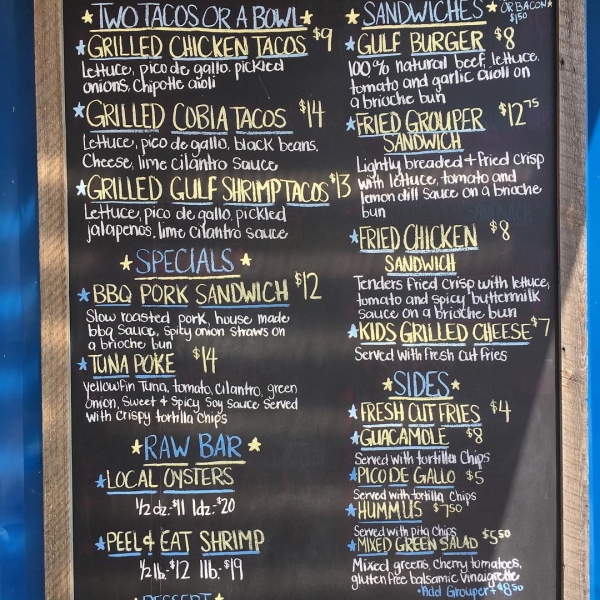 TWO TACOS OR A BOWL
GRILLED CHICKEN TACOS $9
Lettuce, pico de gallo, pickled
onions, Chipotle aioli
GRILLED COBIA TACOS $14
Lettuce, pico de gallo, black beans,
Cheese, lime cilantro sauce
GRILLED GULF SHRIMP TACOS $13
Lettuce, pico de gallo, pickled
jalapenos, lime cilantro sauce
SPECIALS
BBQ PORK SANDWICH $12
Slow roasted pork, house made
bbq sauce, spicy onion straws on
a brioche bun
TUNA POKE $14
Yellowfin Tuna, tomato, cilantro, green
onion, Sweet & Spicy Soy Sauce Served
with Crispy tortilla Chips
RAW BAR
LOCAL OYSTERS
1/2 dz. $11 1dz. $20
PEEL & EAT SHRIMP
1/2 lb. $12 1lb. $19
DESSERT
SANDWICHES
OR BACON
$1.50
GULF BURGER $8
100% natural beef, lettuce,
tomato and garlic aioli on
a brioche bun
FRIED GROUPER $12.75
SANDWICH
Lightly breaded + Fried Crisp
with lettuce, tomato and
lemon dill sauce on a brioche
bun
FRIED CHICKEN $8
SANDWICH
Tenders Fried Crisp with lettuce,
tomato and spicy buttermilk
sauce on a brioche bun
KIDS GRILLED CHEESE $7
Served with Fresh Cut Fries
SIDES
FRESH CUT FRIES $4
GUACAMOLE $8
Served with tortilla Chips
PICO DE GALLO $5
Served with tortilla Chips
HUMMUS $7.50
Served with pita Chips
MIXED GREEN SALAD $5.50
Mixed greens, Cherry tomatoes,
gluten free balsamic Vinaigrette
Add Grouper + $8.50